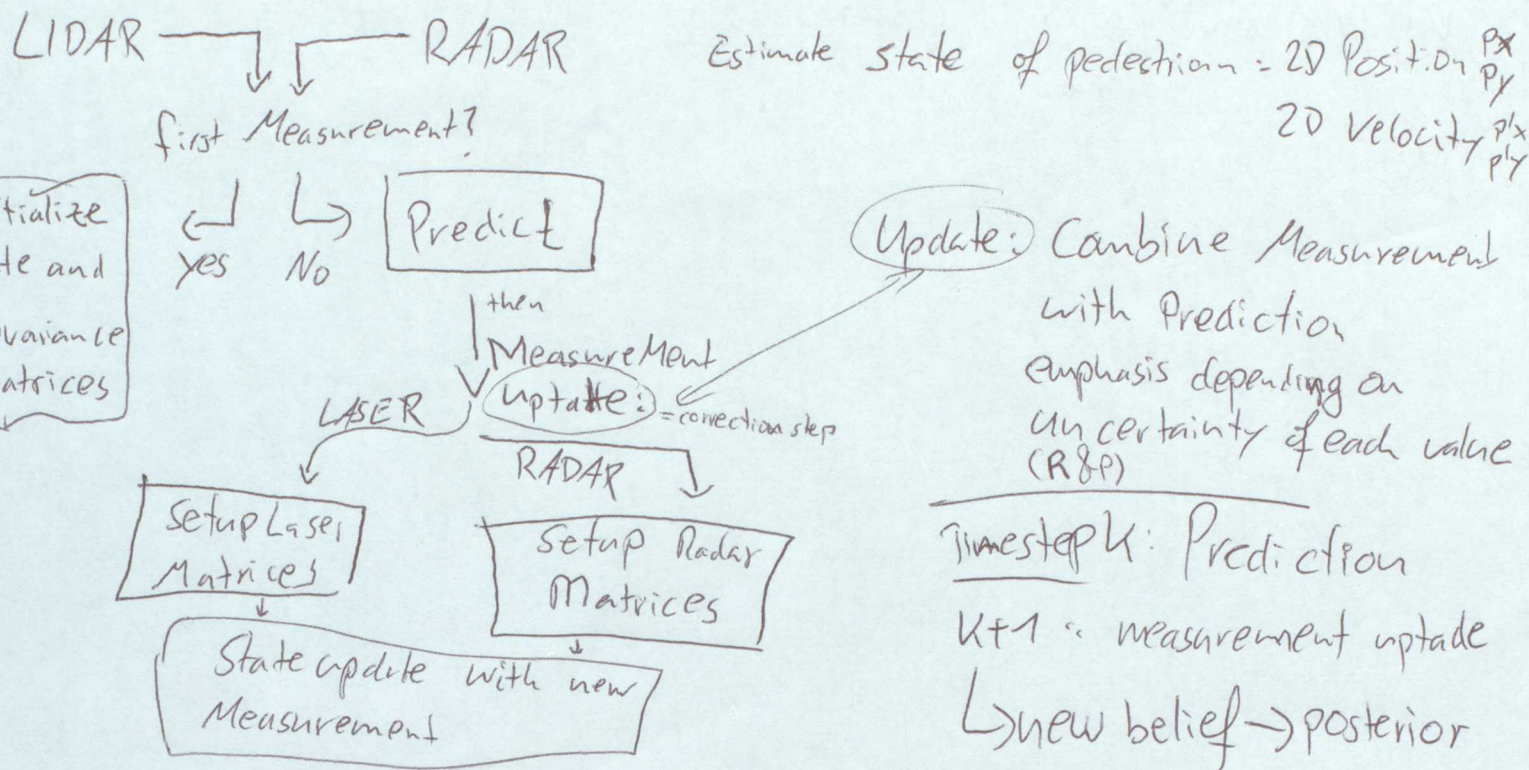 LIDAR RADAR
first Measurement?
yes No
tialize
te and
variance
atrices
Predict
then
Measurement
uptate: = correction step
LASER
RADAR
Setup Laser
Matrices
Setup Radar
Matrices
State update with new
Measurement
Estimate state of pedestrian: 2D Position px
py
2D Velocity p'x
p'y
Update: Combine Measurement
with Prediction
emphasis depending on
uncertainty of each value
(R&P)
Timestep k: Prediction
K+1: measurement uptade
↳new belief→posterior